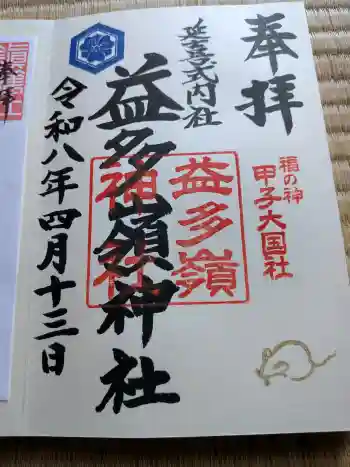 奉拝
福の神
甲子大国社
延喜式内社
益多嶺
神社
益多嶺神社
令和八年四月十三日